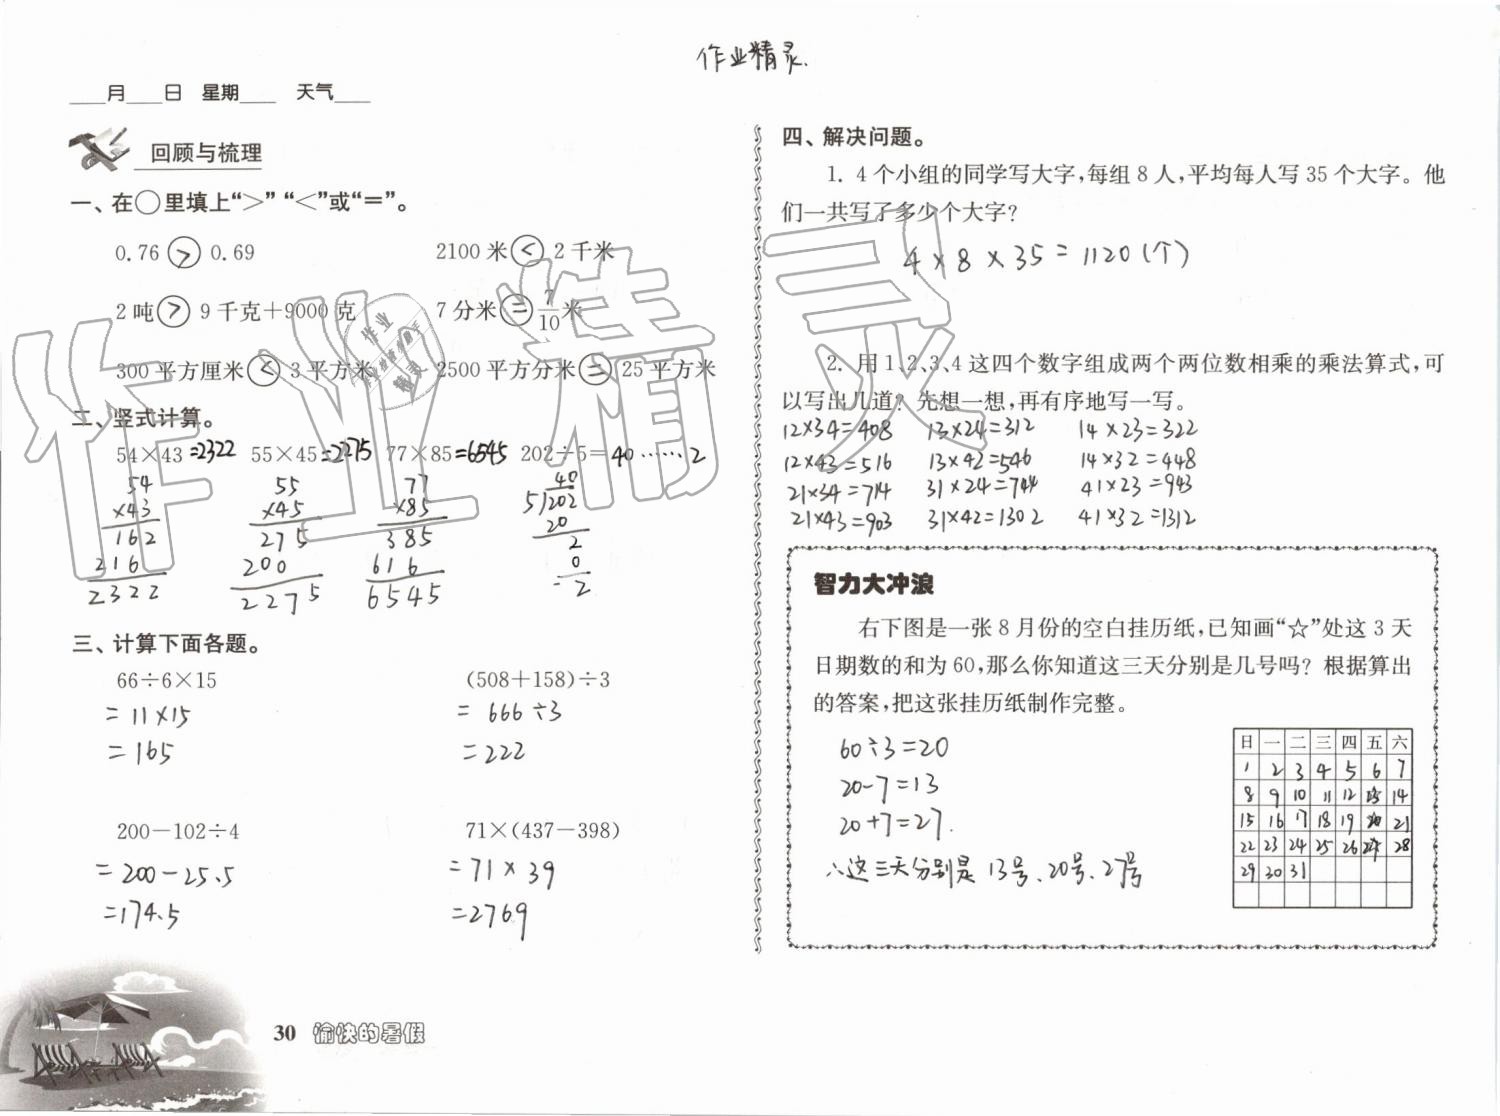 作业精灵.
____月____日 星期____ 天气____
回顾与梳理
一、在○里填上“>”“<”或“=”。
0.76 > 0.69
2100 米 < 2 千米
2 吨 > 9 千克+9000 克
7 分米 = 7/10 米
300 平方厘米 < 3 平方米
2500 平方分米 = 25 平方米
二、竖式计算。
54×43=2322 55×45=2275 77×85=6545 202÷5=40……2
54
×43
162
216
2322
55
×45
275
200
2275
77
×85
385
616
6545
40
5)202
20
2
0
2
三、计算下面各题。
66÷6×15
=11×15
=165
(508+158)÷3
=666÷3
=222
200-102÷4
=200-25.5
=174.5
71×(437-398)
=71×39
=2769
30 愉快的暑假
四、解决问题。
1. 4 个小组的同学写大字,每组 8 人,平均每人写 35 个大字。他
们一共写了多少个大字?
4×8×35=1120(个)
2. 用 1、2、3、4 这四个数字组成两个两位数相乘的乘法算式,可
以写出几道? 先想一想,再有序地写一写。
12×34=408 13×24=312 14×23=322
12×43=516 13×42=546 14×32=448
21×34=714 31×24=744 41×23=943
21×43=903 31×42=1302 41×32=1312
智力大冲浪
右下图是一张 8 月份的空白挂历纸,已知画“☆”处这 3 天
日期数的和为 60,那么你知道这三天分别是几号吗? 根据算出
的答案,把这张挂历纸制作完整。
60÷3=20
20-7=13
20+7=27.
∴这三天分别是13号、20号、27号
日 一 二 三 四 五 六
1 2 3 4 5 6 7
8 9 10 11 12 13 14
15 16 17 18 19 20 21
22 23 24 25 26 27 28
29 30 31
作业精灵